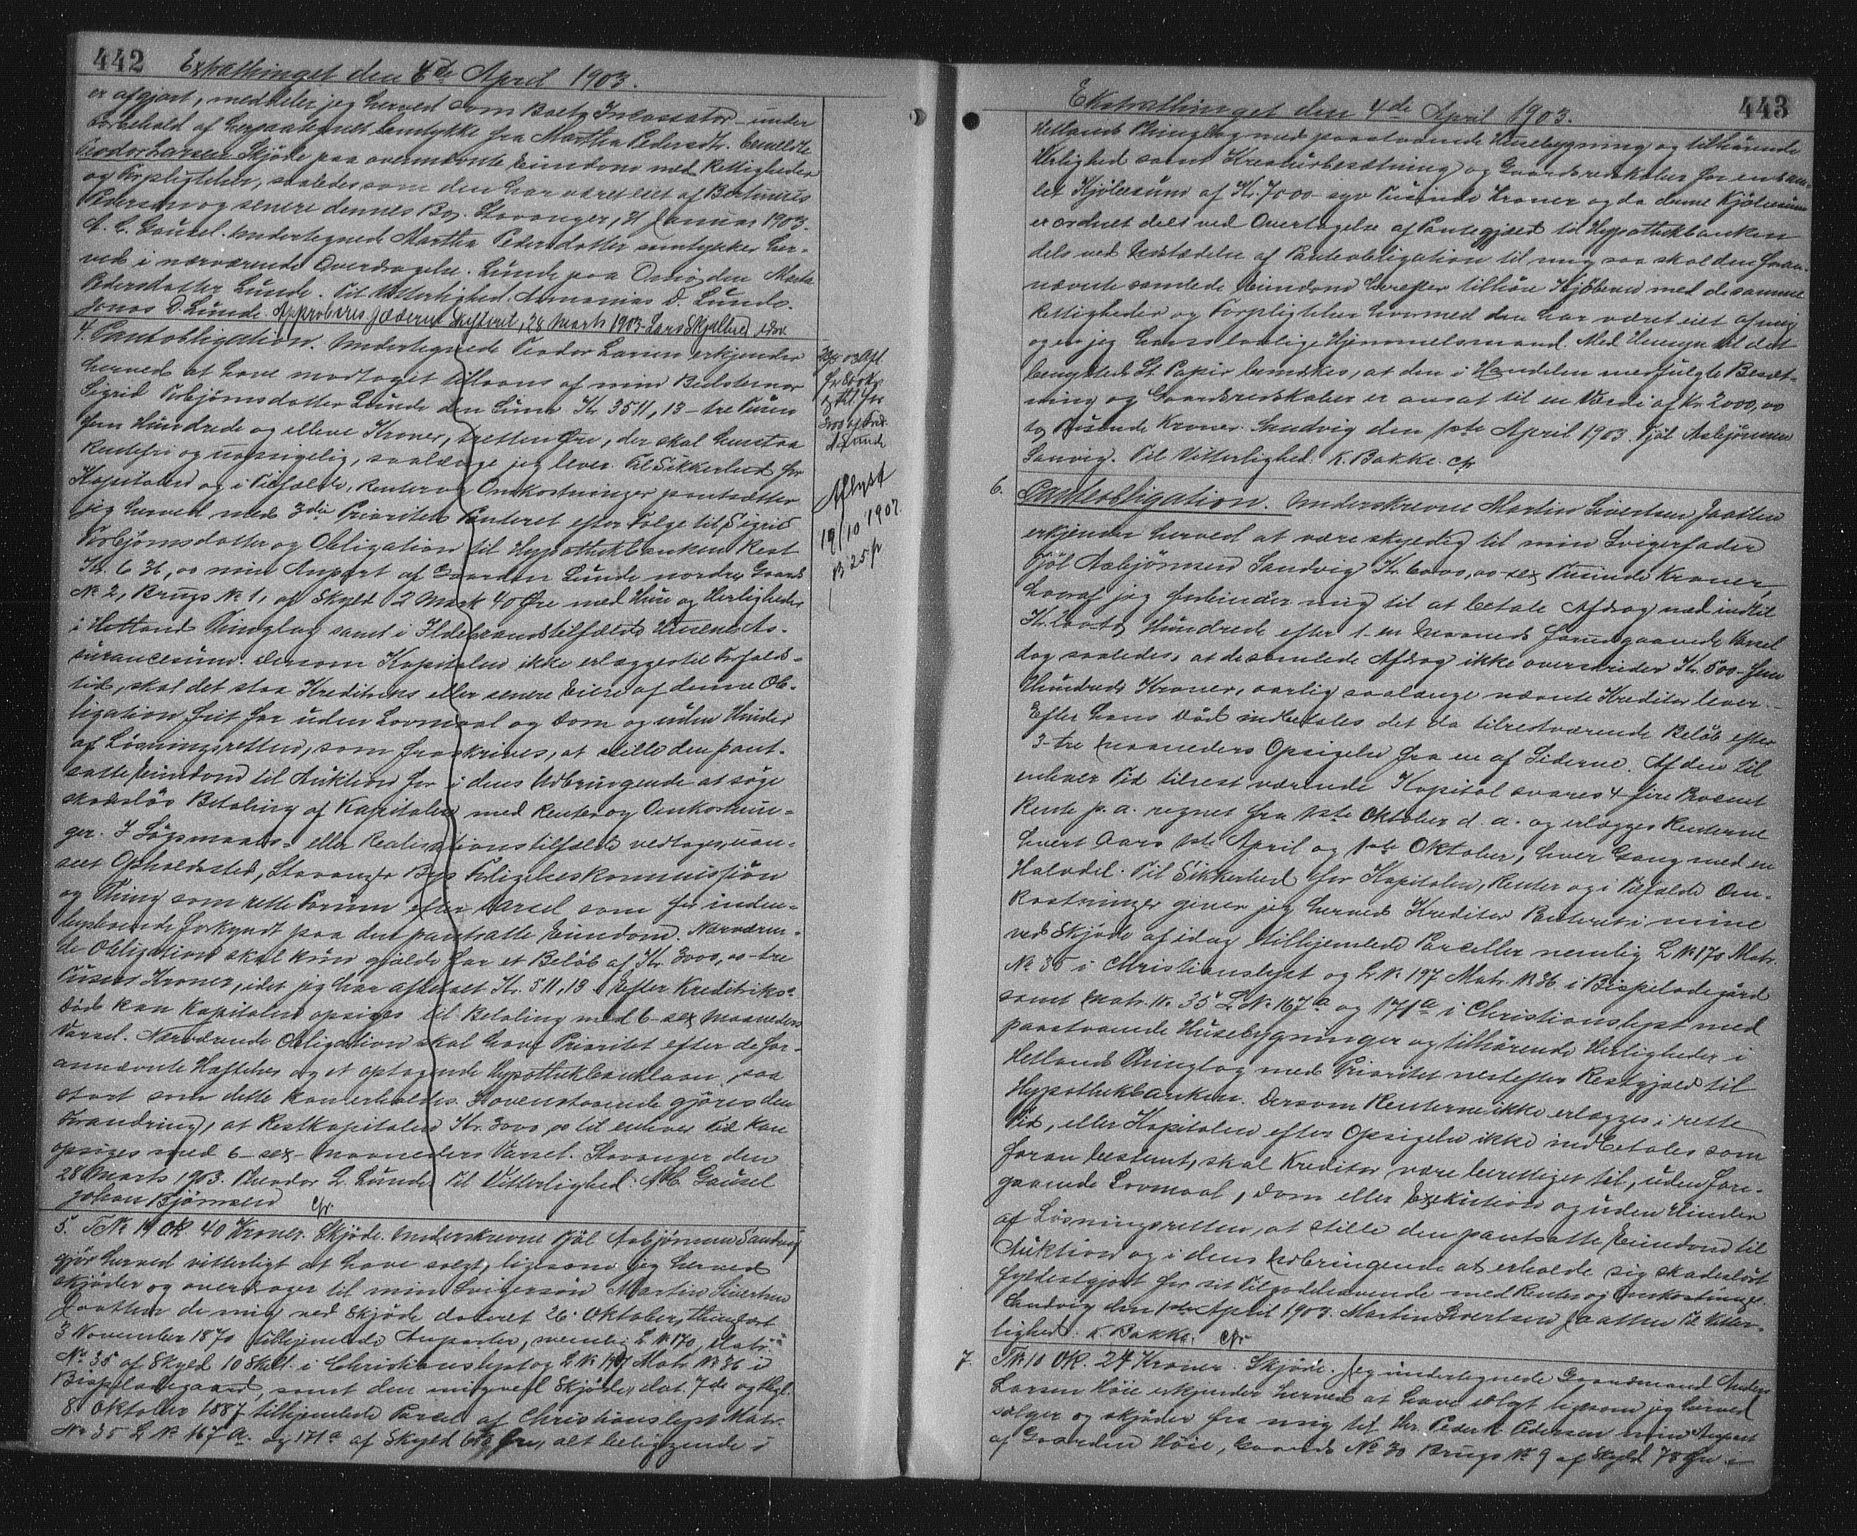 442 Extrathinget den 4de April 1903.
er afgjort, meddeler jeg herved som Boets Incassator under
Forbehold af herpaategnet Samtykke fra Martha Pedersdtr. Enke
Teodor Larsen Skjøde paa ovennævnte Eiendom med Rettigheder
og Forpligtelser, saaledes som den har været eiet af Bertinius
Pedersen og senere dennes Bo. Stavanger, 31 Januar 1903.
A. C. Gausel. Undertegnede Martha Pedersdatter samtykker her-
ved i nærværende Overdragelse. Lunde paa Marta
Pedersdatter Lunde. Til Vitterlighed: Ananias D. Lunde.
Jonas D. Lunde. Approberes Jæderens Skifteret, 28 Marts 1903. Lars Skjølberg
4. Panteobligation. Undertegnede Teodor Larsen erkjender
herved at have modtaget tillaans af min Bedstemor
Sigrid Torbjørnsdatter Lunde den Sum Kr. 3511,13 - tre Tusen
fem Hundrede og elleve Kroner, tretten Øre, der skal henstaa
Rentefri og uopsigelig, saalænge jeg lever. Til Sikkerhed for
Kapitalen og i Tilfælde, Renter og Omkostninger pantsætter
jeg herved med 3die Prioritets Panteret efter Følge til Sigrid
Torbjørnsdatter og Obligation til Hypothekbanken Rest
Kr. 636,00 min Anpart af Gaarden Lunde nordre, Gaards
No 2, Brugs No 1, af Skyld 2 Mark 40 Øre med Huse og Herligheder
i Hetland Thinglag samt i Ildebrandstilfælde Husenes As-
surancesum. Dersom Kapitalen ikke erlægges til Forfalds-
tid, skal det staa Kreditricen eller senere Eiere af denne Ob-
ligation frit for uden Lovmaal og Dom og uden Hinder
af Løsningsretten, som fraskrives, at stille den pant-
satte Eiendom til Auktion for i dens Udbringende at søge
skadesløs Betaling af Kapitalen med Renter og Omkostnin-
ger. I Søgsmaals- eller Realisationstilfælde vedtages, uan-
seet Opholdssted, Stavanger Bys Forligelseskommission
og Thing som rette Forum efter Varsel som for inden-
bysboende forkyndt paa den pantsatte Eiendom. Nærværen-
de Obligation skal kun gjælde for et Beløb af Kr. 3000,00 - tre
Tusen Kroner, idet jeg har afbetalt Kr. 511,13. Efter Kreditrices
Død kan Kapitalen opsiges til Betaling med 6 - sex Maaneders
Varsel. Nærværende Obligation skal have Prioritet efter de for-
annævnte Heftelser og et optagende Hypothekbanklaan, saa
stort som dette kan erholdes. I ovenstaaende gjøres den
Forandring, at Restkapitalen Kr. 3000,00 til enhver Tid kan
opsiges med 6 - sex - Maaneders Varsel. Stavanger den
28 Marts 1903. Theodor L. Lunde. Til Vitterlighed: A. C. Gausel
Johan Bjørnsen
Aflyst
19/10 1907.
B 25 p
5. TNo 19 OK 40 Kroner. Skjøde. Underskrevne Tjøl Asbjørnsen Sandvig
gjør herved vitterligt at have solgt, ligesom jeg herved
skjøder og overdrager til min Svigersøn Martin Sivertsen
Jaatten de mig ved Skjøde dateret 26. Oktober, thinglæst
3 November 1870 tilhjemlede Anparter, nemlig L No 170, Matr.
No 35 af Skyld 10 Skill. i Christianslyst og L No 197 Matr. No 36 i
Bispeladegaard samt den mig ved Skjøde, dat. 7de og thgl.
8 Oktober 1887 tilhjemlede Parcel af Christianslyst Matr.
No 35 L No 167a. og 171a af Skyld Øre, alt beliggende i
Extrathinget den 4de April 1903. 443
Hetlands Thinglag med paastaaende Husebygning og tilhørende
Herlighed samt Kreaturbesætning og Gaardsredskaber for en sam-
let Kjøbesum af Kr. 7000 syv Tusinde Kroner og da denne Kjøbesum
er ordnet dels ved Overtagelse af Pantegjæld til Hypothekbanken
dels ved Udstædelse af Panteobligation til mig saa skal den foran-
nævnte samlede Eiendom herefter tilhøre Kjøberen med de samme
Rettigheder og Forpligtelser hvormed den har været eiet af mig
og er jeg hans lovlige Hjemmelsmand. Med Hensyn til det
benyttede St. Papir bemærkes, at den i Handelen medfulgte Besæt-
ning og Gaardsredskaber er ansat til en Værdi af Kr. 2000,00
to Tusinde Kroner. Sandvig den 1ste April 1903. Tjøl Asbjørnsen
Sanvig. Til Vitterlighed: K. Bakke.
6. Panteobligation. Underskrevne Martin Sivertsen Jaatten
erkjender herved at være skyldig til min Svigerfader
Tjøl Asbjørnsen Sandvig Kr. 6000,00 sex Tusinde Kroner,
hvoraf jeg forbinder mig til at betale Afdrag ved indtil
Kr. Hundrede efter 1 - en Maaneds forudgaaende Varsel
dog saaledes, at de samlede Afdrag ikke overskrider Kr. 500 - fem
Hundrede Kroner, aarlig saalænge nævnte Kreditor lever. -
Efter hans Død indbetales det da tilrestværende Beløb efter
3 - tre Maaneders Opsigelse fra en af Siderne. Af den til
enhver Tid tilrestværende Kapital svares 4 fire Procent
Rente p. a. regnet fra 1ste Oktober d. a. og erlægges Renterne
hvert Aars 1ste April og 1ste Oktober, hver Gang med en
Halvdel. Til Sikkerhed for Kapitalen, Renter og i Tilfælde Om-
kostninger giver jeg herved Kreditor Panteret i mine
ved Skjøde af idag tilhjemlede Parceller nemlig L No 170 Matr.
No 35 i Christianslyst og L No. 197 Matr. No 36 i Bispeladegård
samt Matr. No. 35 L No 167a og 171a i Christianslyst med
paastaaende Husebygninger og tilhørende Herligheder i
Hetlands Thinglag med Prioritet nestefter Restgjæld til
Hypothekbanken. Dersom Renterne ikke erlægges i rette
Tid, eller Kapitalen efter Opsigelse ikke indbetales som
foran bestemt, skal Kreditor være berettiget til, uden fore-
gaaende Lovmaal, Dom eller Exekution og uden Hinder
af Løsningsretten, at stille den pantsatte Eiendom til
Auktion og i dens Udbringende at erholde sig skadesløst
fyldestgjort for sit Tilgodehavende med Renter og Omkostninger.
Sandvig den 1ste April 1903. Martin Sivertsen Jaatten. Til Vitter-
lighed: K. Bakke.
7. TNo 10 OK. 24 Kroner. Skjøde. Jeg undertegnede Gaardmand Anders
Larsen Høie erkjender herved at have solgt ligesom jeg herved
sælger og skjøder fra mig til Hr. Peder K. Pedersen min Anpart
af Gaarden Høie, Gaards No 30 Brugs No 9 af Skyld 78 Øre